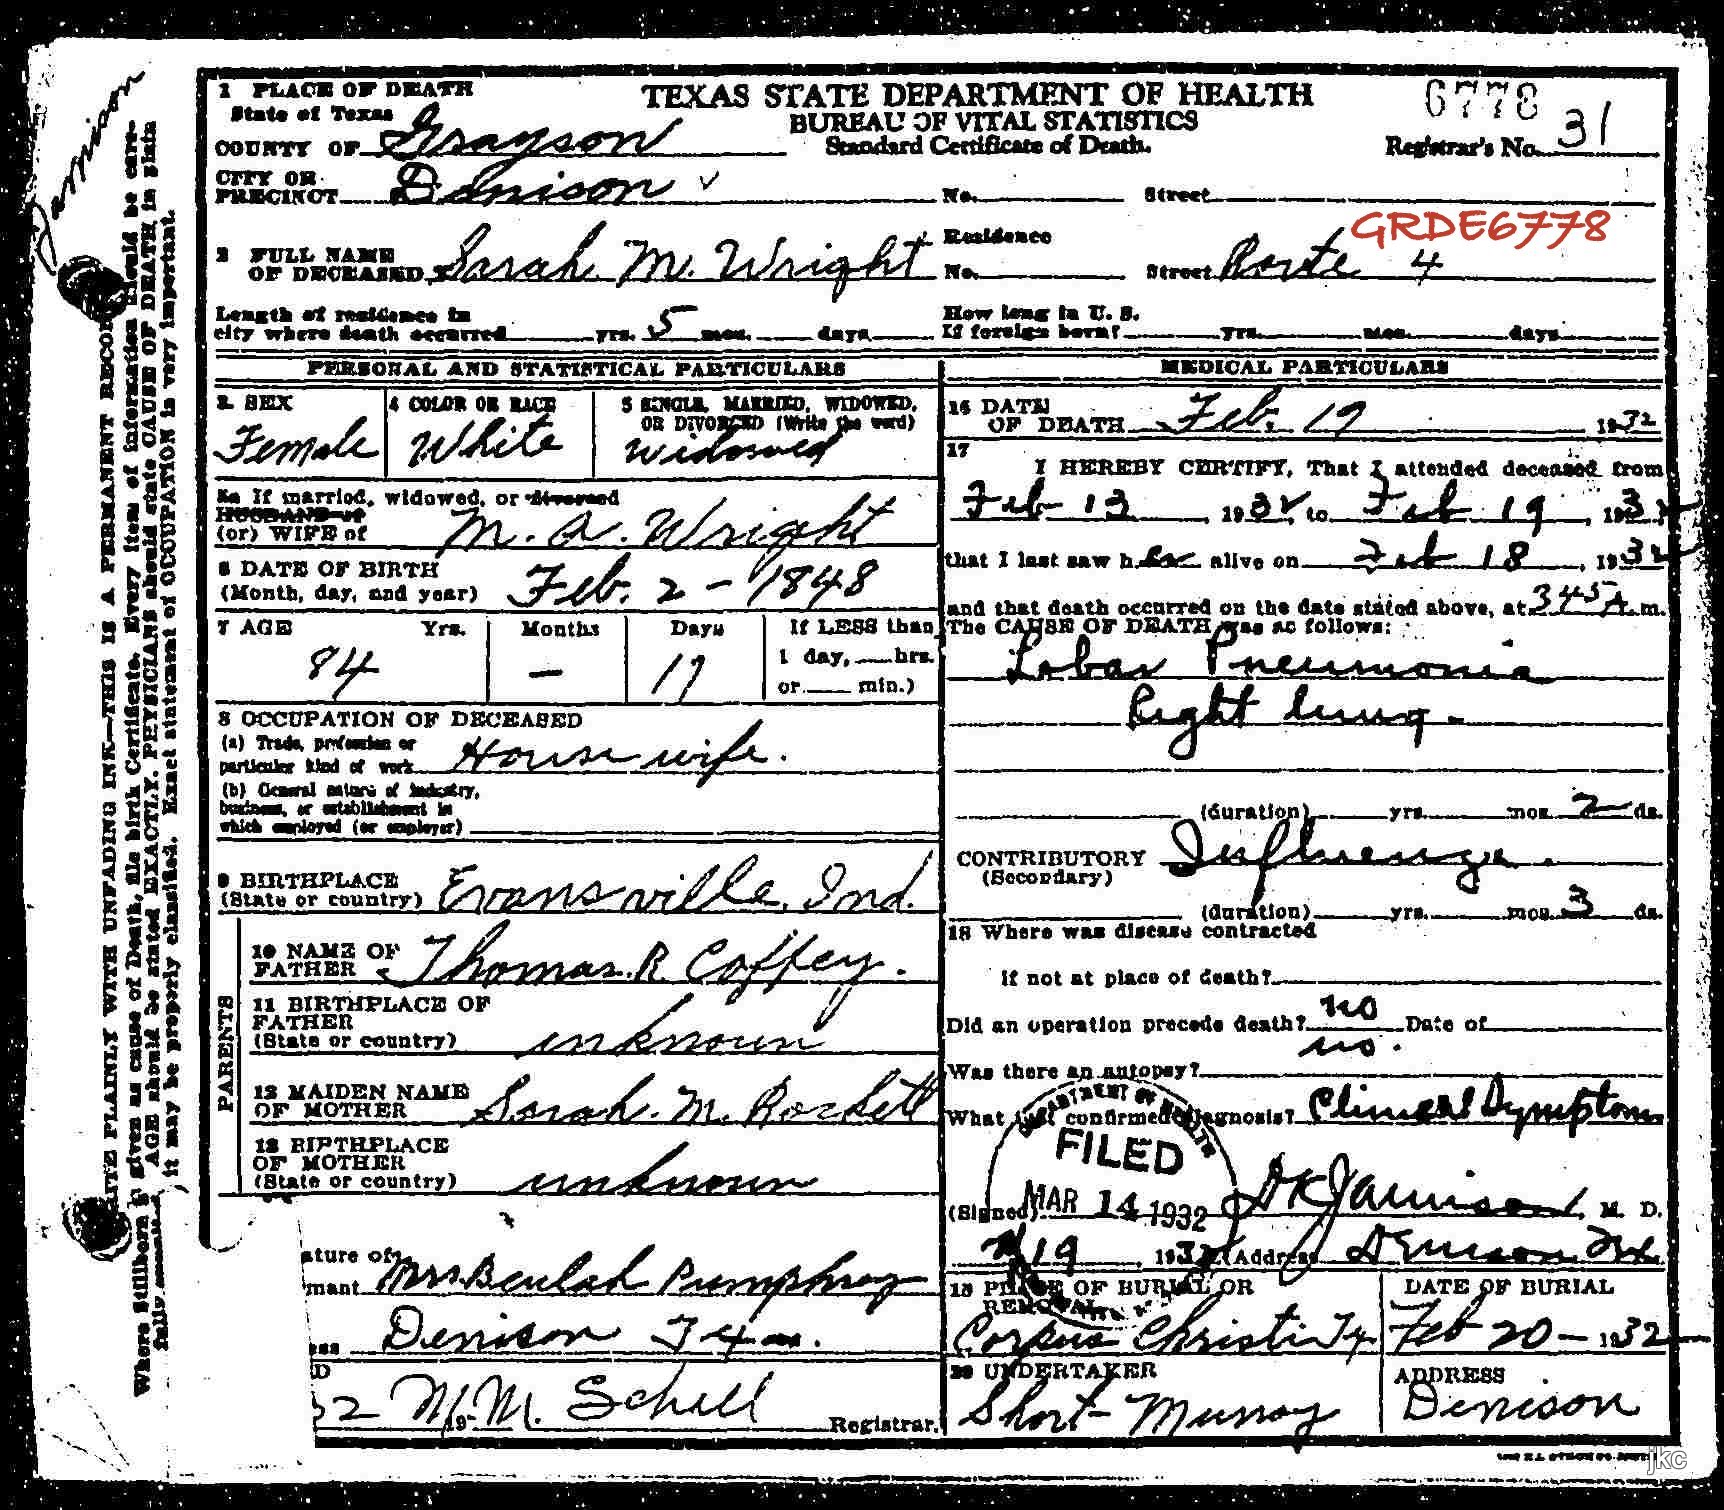 1 PLACE OF DEATH
State of Texas
COUNTY OF Grayson
CITY OR
PRECINCT Denison
TEXAS STATE DEPARTMENT OF HEALTH
BUREAU OF VITAL STATISTICS
Standard Certificate of Death.
6778
Registrar's No. 31
No. Street
GRDE6778
2 FULL NAME
OF DECEASED Sarah M. Wright
Residence
No. Street Route 4
Length of residence in
city where death occurred yrs. 5 mos. days
How long in U. S.
If foreign born? yrs. mos. days
PERSONAL AND STATISTICAL PARTICULARS
3. SEX
Female
4 COLOR OR RACE
White
5 SINGLE, MARRIED, WIDOWED,
OR DIVORCED (Write the word)
widowed
5a If married, widowed, or divorced
HUSBAND of
(or) WIFE of M. A. Wright
6 DATE OF BIRTH
(Month, day, and year) Feb. 2 - 1848
7 AGE Yrs. Months Days
84 — 17
If LESS than
1 day, hrs.
or min.)
8 OCCUPATION OF DECEASED
(a) Trade, profession or
particular kind of work House wife.
(b) General nature of industry,
business, or establishment in
which employed (or employer)
9 BIRTHPLACE
(State or country) Evansville, Ind.
PARENTS
10 NAME OF
FATHER Thomas. R. Coffey.
11 BIRTHPLACE OF
FATHER
(State or country) unknown
12 MAIDEN NAME
OF MOTHER Sarah. M. Rockett
13 BIRTHPLACE
OF MOTHER
(State or country) unknown
ature of
mant Mrs Beulah Pumphrey
ess Denison Tex.
D
32 M. M. Schell
19
Registrar.
MEDICAL PARTICULARS
16 DATE
OF DEATH Feb. 19 1932
17
I HEREBY CERTIFY, That I attended deceased from
Feb 13, 1932, to Feb 19, 1932
that I last saw her alive on Feb 18, 1932
and that death occurred on the date stated above, at 345A m.
The CAUSE OF DEATH was as follows:
Lobar Pneumonia
Right lung -
(duration) yrs. mos. 2 ds.
CONTRIBUTORY Influenza.
(Secondary)
(duration) yrs. mos. 3 ds.
18 Where was disease contracted
if not at place of death?
Did an operation precede death? no Date of
Was there an autopsy? no.
What test confirmed diagnosis? Clinical Symptoms
DEPARTMENT OF HEALTH
FILED
MAR 14 1932
(Signed) D K Jamison, M. D.
2/19, 1932 (Address Denison Tex.
19 PLACE OF BURIAL OR
REMOVAL
Corpus Christi Tx
DATE OF BURIAL
Feb 20 - 1932
20 UNDERTAKER
Short-Murray
ADDRESS
Denison
Jamison
WRITE PLAINLY WITH UNFADING INK—THIS IS A PERMANENT RECORD
Where Stillborn is given as cause of Death, file birth Certificate. Every item of information should be care-
fully AGE should be stated EXACTLY. PHYSICIANS should state CAUSE OF DEATH in plain
it may be properly classified. Exact statement of OCCUPATION is very important.
jkc